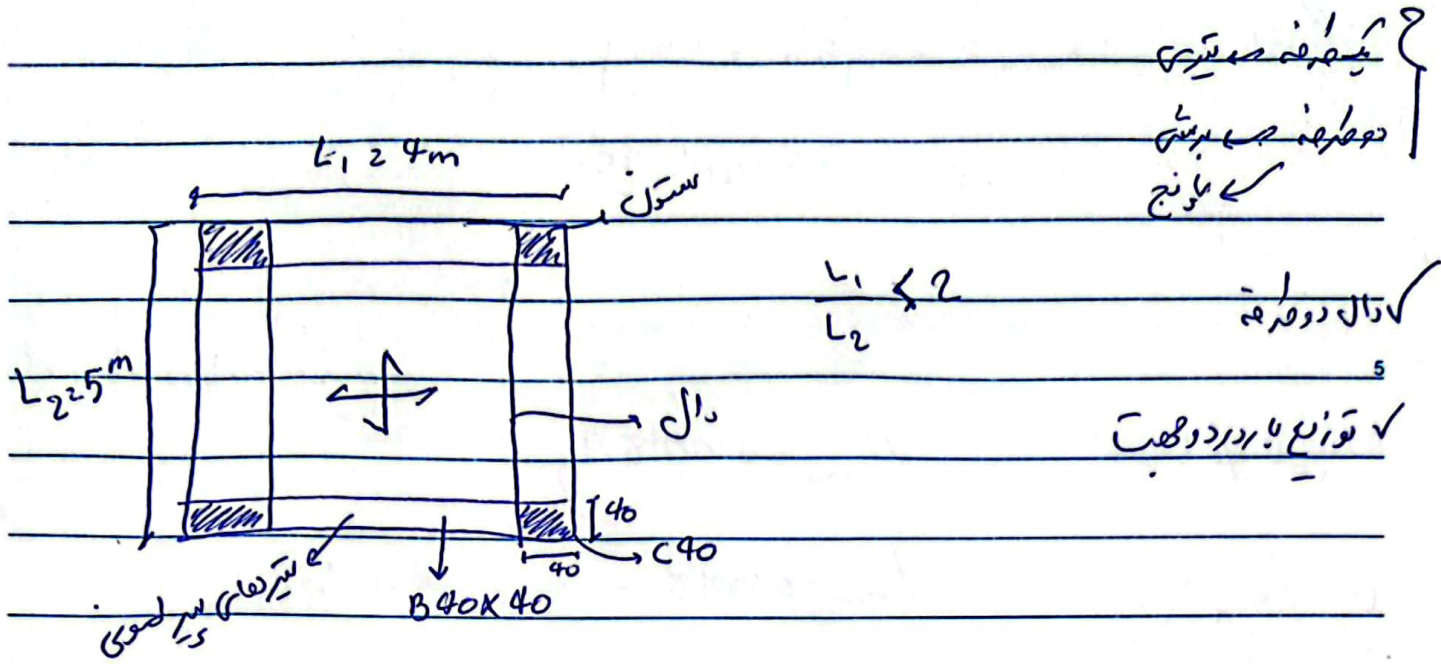 یکطرفه → تیری
دوطرفه → برشی
↙ پانچ
L1 = 4m
ستون
L1/L2 < 2
✓ دال دوطرفه
5
L2 = 5m
دال
✓ توزیع بار در دو جهت
40
40
C40
تیرهای پیرامونی
B40×40